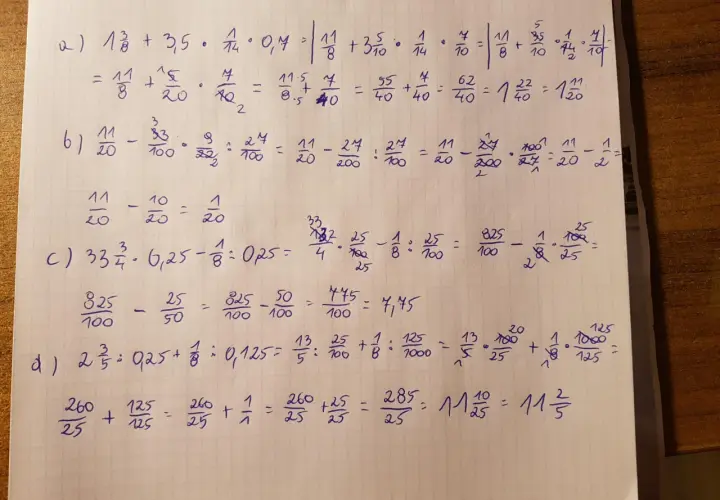 a) 1 3/8 + 3,5 · 1/14 · 0,7 = | 11/8 + 3 5/10 · 1/14 · 7/10 = | 11/8 + 35/10 · 1/14 · 7/10 | =
= 11/8 + 5/20 · 7/10 = 11·5/8·5 + 7/40 = 55/40 + 7/40 = 62/40 = 1 22/40 = 1 11/20
b) 11/20 - 33/100 · 9/22 : 27/100 = 11/20 - 27/200 : 27/100 = 11/20 - 27/200 · 100/27 = 11/20 - 1/2 =
11/20 - 10/20 = 1/20
c) 33 3/4 · 6,25 - 1/8 : 0,25 = 132/4 · 25/100 - 1/8 : 25/100 = 825/100 - 1/8 · 100/25 =
825/100 - 25/50 = 825/100 - 50/100 = 775/100 = 7,75
d) 2 3/5 : 0,25 + 1/8 : 0,125 = 13/5 : 25/100 + 1/8 : 125/1000 = 13/5 · 100/25 + 1/8 · 1000/125 =
260/25 + 125/125 = 260/25 + 1/1 = 260/25 + 25/25 = 285/25 = 11 10/25 = 11 2/5